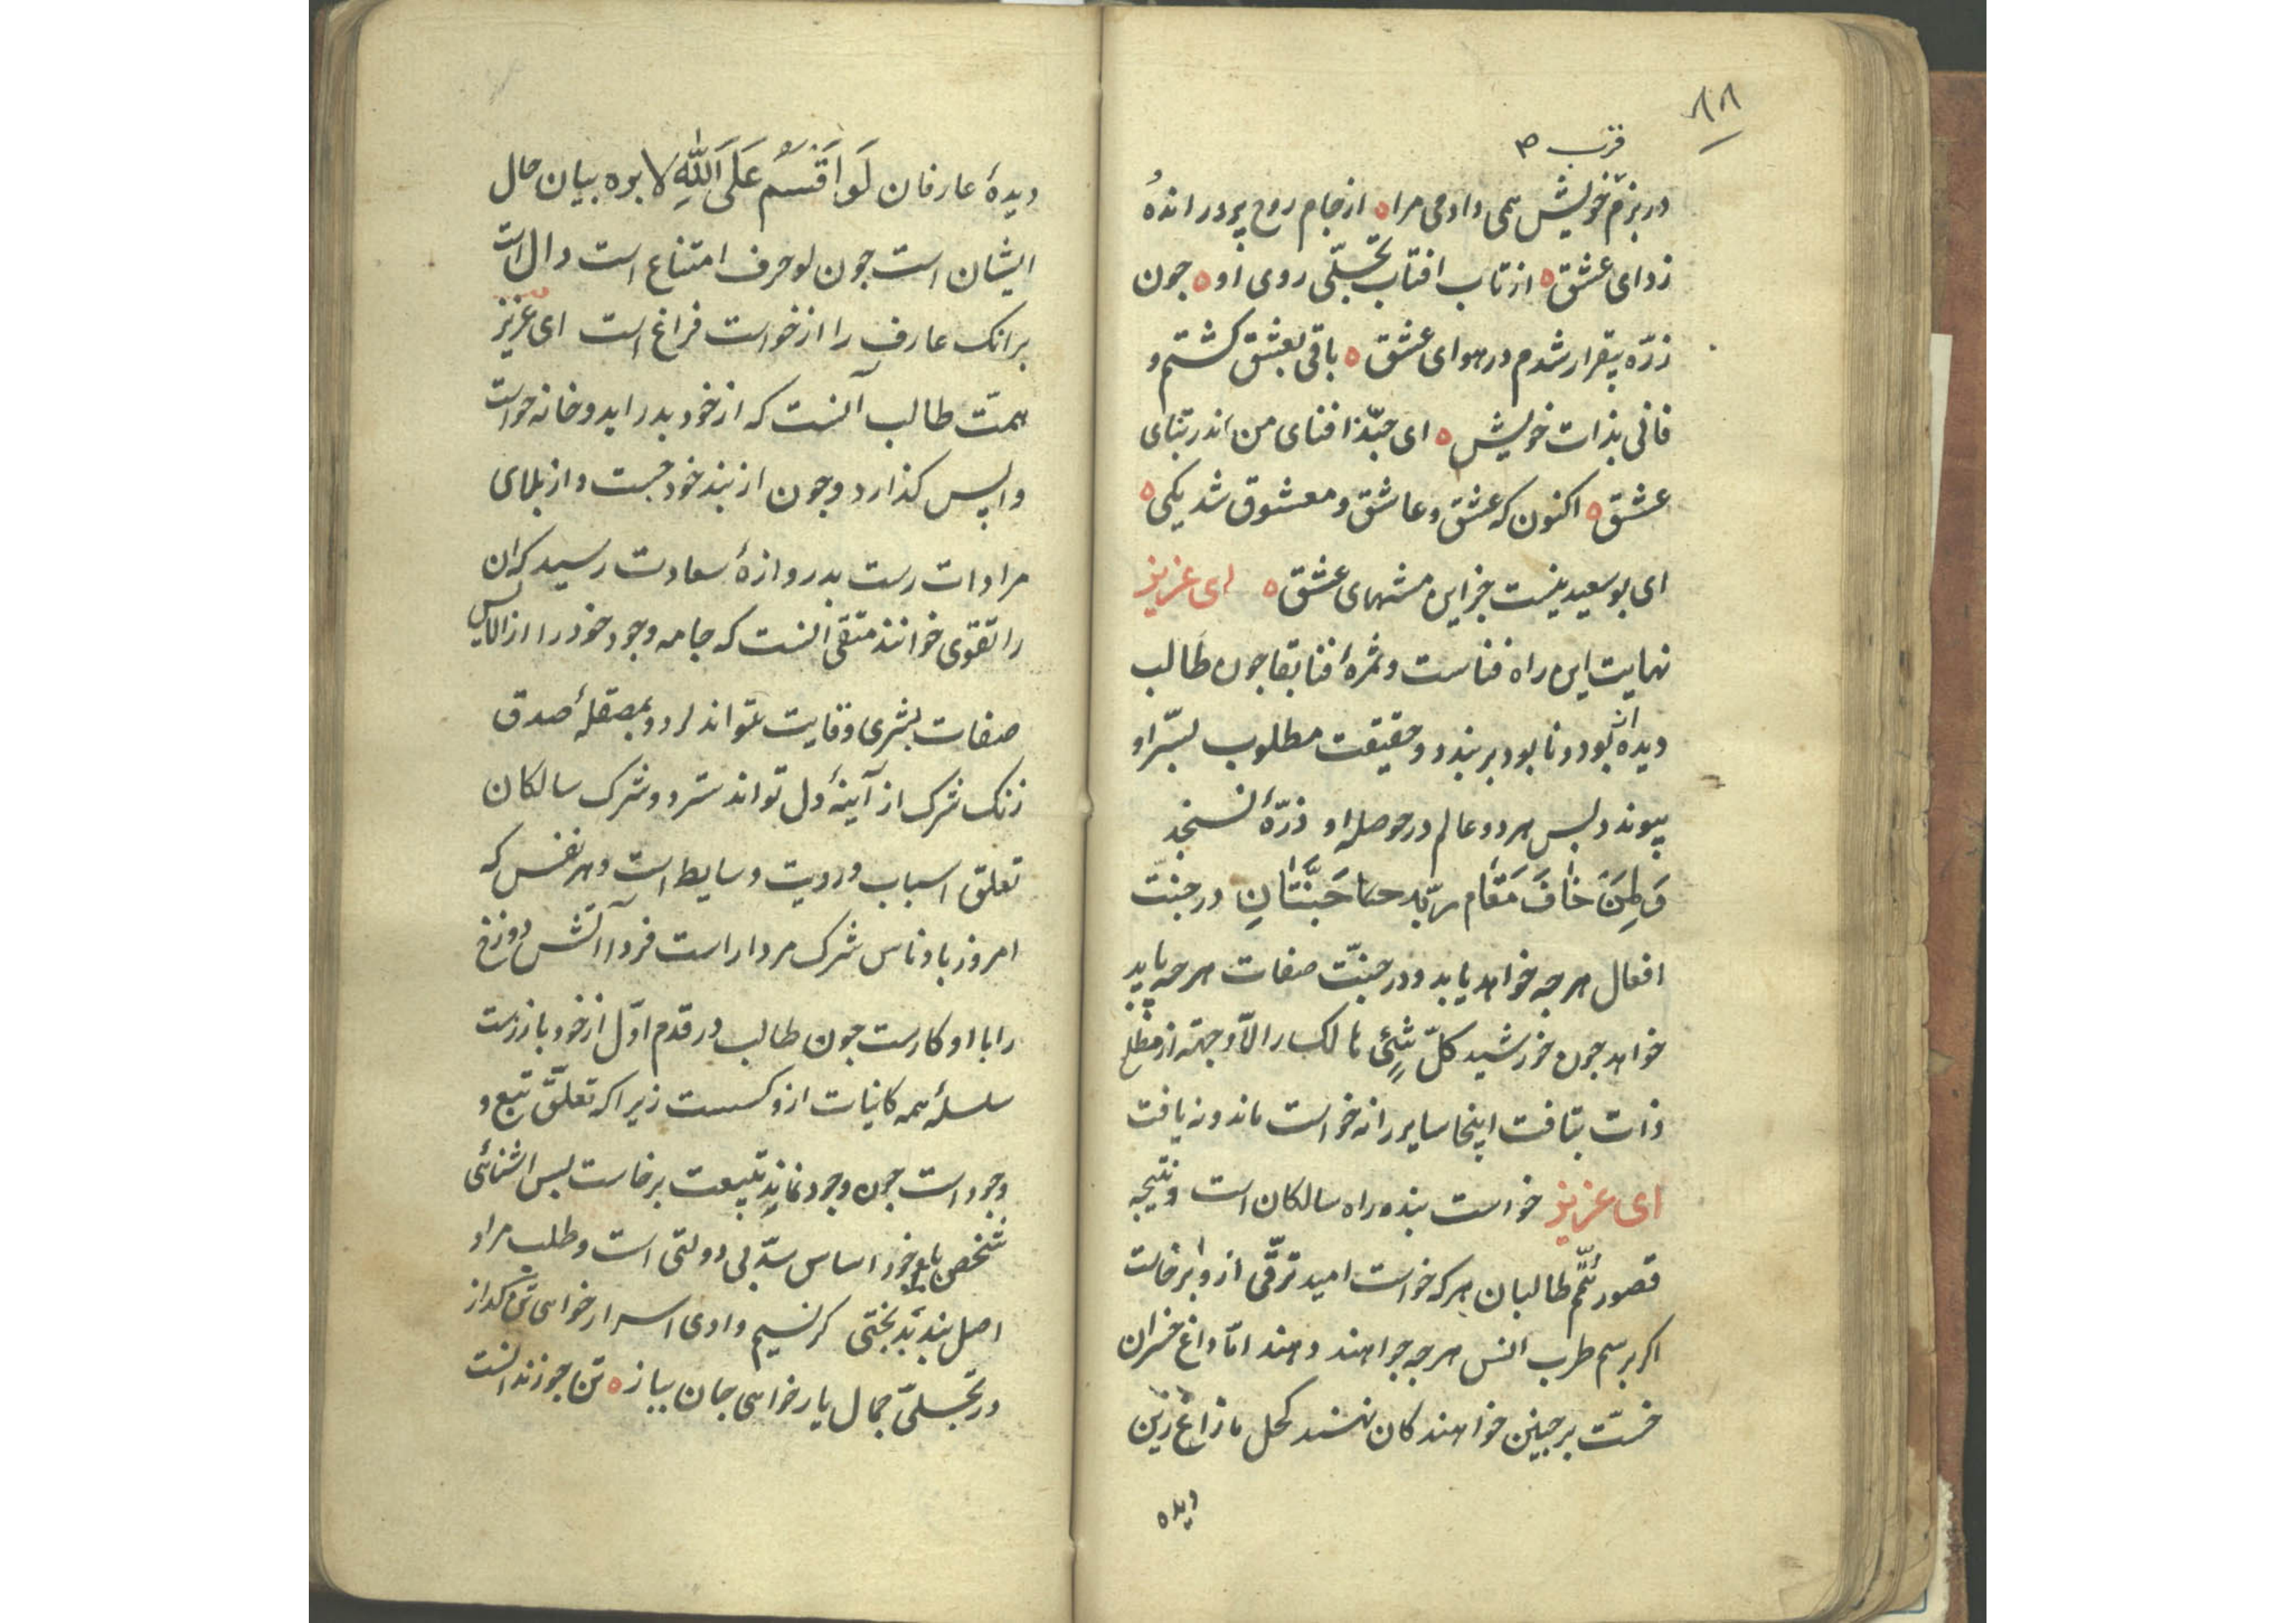 ۸۸
قرب ص
در بزم خویش همی داد می مرا ه از جام روح پرور اندُه
زدای عشق ه از تاب افتاب تجلّی روی او ه جون
ذرّه بیقرار شدم در هوای عشق ه باقی بعشق کشتم و
فانی بذات خویش ه ای حبّذا فنای من اندر بقای
عشق ه اکنون که عشق و عاشق و معشوق شد یکی ه
ای بوسعید نیست جز این منتهای عشق ه ای عزیز
نهایت این راه فناست و ثمرهٔ فنا بقا جون طالب
دیده از بود و نابود بر بندد و حقیقت مطلوب بسّر او
پیوندد بس هر دو عالم در حوصله او ذرّهٔ نسنجد
وَلِمَنْ خَافَ مَقَام ربّه جَنَّتَانِ در جنّت
افعال هر جه خواهد یابد و در جنّت صفات هر جه یابد
خواهد جون خورشید کلّ شئ هالک الاّ وجهه از مطلع
ذات بتافت اینجا سایر را نه خواست ماند و نه یافت
ای عزیز خواست بنده راه سالکان است و نتیجه
قصور همّم طالبان هر که خواست امید ترقّی ازو برخاست
اکر برسم طرب انس هر جه خواهند دهند امّا داغ خسران
خسّت بر جبین خواهند کان نهند کحل ما زاغ زین
دیده
دیدهٔ عارفان لَو اَقْسَمَ عَلَی اللّٰهِ لابره بیان حال
ایشان است جون لو حرف امتناع است دال است
بر انک عارف را از خواست فراغ است ای عزیز
همّت طالب آنست که از خود بدر اید و خانه خواست
واپس کذارد و جون از بند خود جست و از بلای
مرادات رست بدروازهٔ سعادت رسید که ان
را تقوی خوانند متقی آنست که جامه وجود خود را از الایش
صفات بشری وقایت تواند کرد و بمصقلهٔ صدق
زنک شرک از آینهٔ دل تواند سترد و شرک سالکان
تعلق اسباب و رویت وسایط است و هر نفس که
امروز با وناس شرک مردار است فردا آتش دوزخ
را با او کارست جون طالب در قدم اوّل از خود باز رست
سلسلهٔ همه کاینات ازو کسست زیرا که تعلّق تبع و
وجود است جون وجود نماند تبیعت برخاست بس اشنائی
شخص با خود اساس سدّ بی دولتی است و طلب مراد
اصل بند بدبختی کر نسیم وادی اسرار خواهی تن کداز
در تجلّی جمال یار خواهی جان بباز ه تن جو زندانست